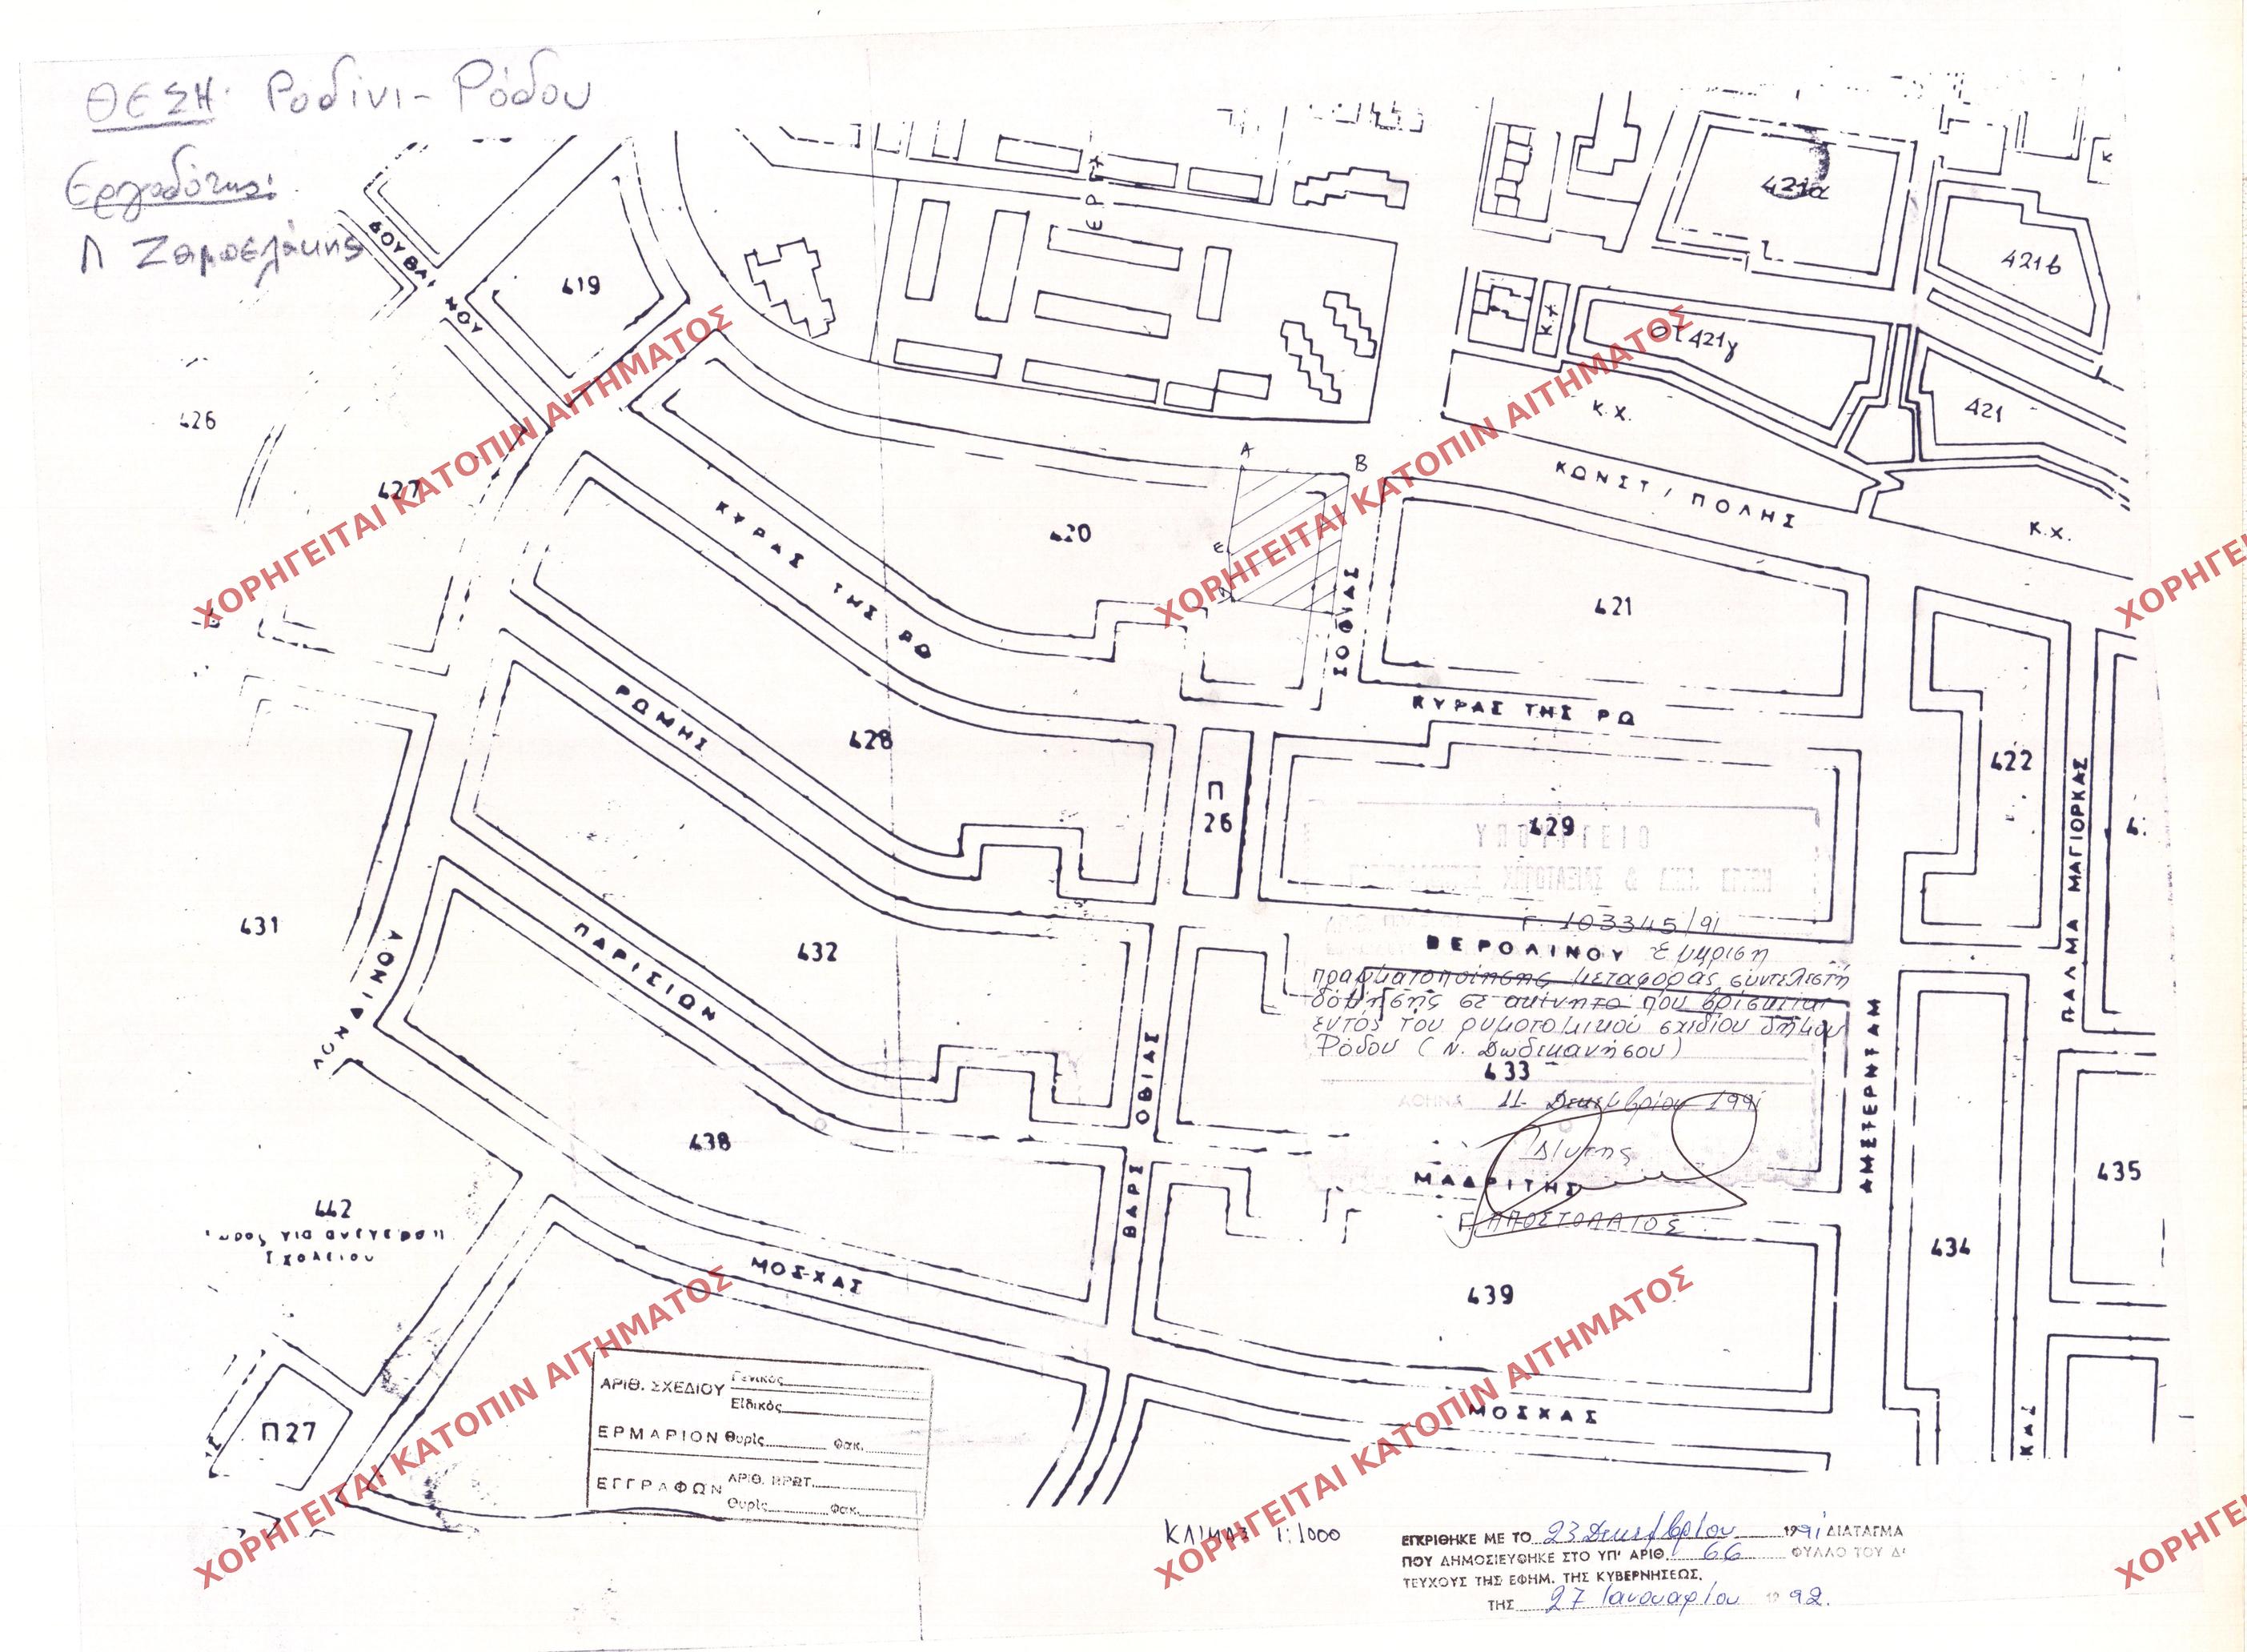 ΘΕΣΗ: Ροδίνι - Ρόδου
Εργοδότης:
Π Ζαμπελάκης
ΔΟΥΒΛΙΝΟΥ
419
426
427
ΕΡΓΑ
421α
421β
Κ.Χ
ΟΤ 421γ
Κ.Χ.
421
ΚΩΝΣΤ/ΠΟΛΗΣ
Κ.Χ.
Α
Β
Ε
420
ΚΥΡΑΣ ΤΗΣ ΡΩ
ΣΟΦΙΑΣ
421
ΚΥΡΑΣ ΤΗΣ ΡΩ
ΡΩΜΗΣ
428
Π
26
429
422
ΠΑΛΜΑ ΜΑΓΙΟΡΚΑΣ
431
432
ΠΑΡΙΣΙΩΝ
ΛΟΝΔΙΝΟΥ
Γ. 103345/91
ΒΕΡΟΛΙΝΟΥ
Έγκριση
πραγματοποίησης μεταφοράς συντελεστή
δόμησης σε ακίνητο που βρίσκεται
εντός του ρυμοτομικού σχεδίου δήμου
Ρόδου (Ν. Δωδεκανήσου)
433
ΑΘΗΝΑ 11 Δεκεμβρίου 1991
Δ/ντης
ΜΑΔΡΙΤΗΣ
Γ. ΑΠΟΣΤΟΛΑΤΟΣ
ΑΜΣΤΕΡΝΤΑΜ
ΒΑΡΣΟΒΙΑΣ
438
435
434
439
442
χώρος για ανέγερση
Σχολείου
ΜΟΣΧΑΣ
ΜΟΣΧΑΣ
Π27
ΚΑΣ
ΑΡΙΘ. ΣΧΕΔΙΟΥ Γενικός
Ειδικός
ΕΡΜΑΡΙΟΝ Θυρίς Φακ.
ΕΓΓΡΑΦΩΝ ΑΡΙΘ. ΠΡΩΤ.
Θυρίς Φακ.
ΚΛΙΜΑΞ 1:1000
ΕΓΚΡΙΘΗΚΕ ΜΕ ΤΟ 23 Δεκεμβρίου 1991 ΔΙΑΤΑΓΜΑ
ΠΟΥ ΔΗΜΟΣΙΕΥΘΗΚΕ ΣΤΟ ΥΠ' ΑΡΙΘ. 66 ΦΥΛΛΟ ΤΟΥ Δ'
ΤΕΥΧΟΥΣ ΤΗΣ ΕΦΗΜ. ΤΗΣ ΚΥΒΕΡΝΗΣΕΩΣ,
ΤΗΣ 27 Ιανουαρίου 1992.
ΧΟΡΗΓΕΙΤΑΙ ΚΑΤΟΠΙΝ ΑΙΤΗΜΑΤΟΣ
ΧΟΡΗΓΕΙΤΑΙ ΚΑΤΟΠΙΝ ΑΙΤΗΜΑΤΟΣ
ΧΟΡΗΓΕΙΤΑΙ ΚΑΤΟΠΙΝ ΑΙΤΗΜΑΤΟΣ
ΧΟΡΗΓΕΙΤΑΙ ΚΑΤΟΠΙΝ ΑΙΤΗΜΑΤΟΣ
ΧΟΡΗΓΕΙ
ΧΟΡΗΓΕΙ